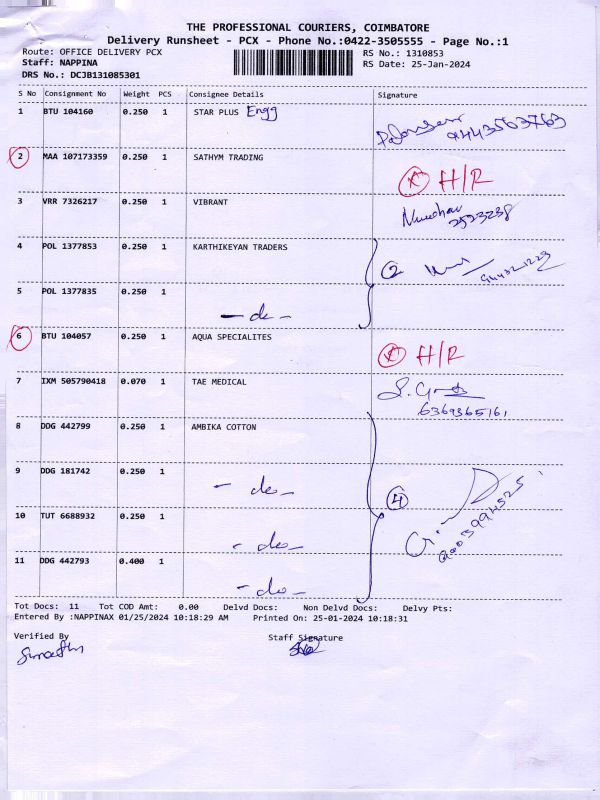 THE PROFESSIONAL COURIERS, COIMBATORE
Delivery Runsheet - PCX - Phone No.:0422-3505555 - Page No.:1
Route: OFFICE DELIVERY PCX
RS No.: 1310853
Staff: NAPPINA
RS Date: 25-Jan-2024
DRS No.: DCJB131085301
S No Consignment No Weight PCS Consignee Details Signature
1 BTU 104160 0.250 1 STAR PLUS Engg
9443563763
2 MAA 107173359 0.250 1 SATHYM TRADING
X H/R
3 VRR 7326217 0.250 1 VIBRANT
2523238
4 POL 1377853 0.250 1 KARTHIKEYAN TRADERS
2
5 POL 1377835 0.250 1
- do -
6 BTU 104057 0.250 1 AQUA SPECIALITES
X H/R
7 IXM 505790418 0.070 1 TAE MEDICAL
6369365161
8 DDG 442799 0.250 1 AMBIKA COTTON
9 DDG 181742 0.250 1
- do -
4
10 TUT 6688932 0.250 1
- do -
11 DDG 442793 0.400 1
- do -
Tot Docs: 11 Tot COD Amt: 0.00 Delvd Docs: Non Delvd Docs: Delvy Pts:
Entered By :NAPPINAX 01/25/2024 10:18:29 AM Printed On: 25-01-2024 10:18:31
Verified By
Staff Signature